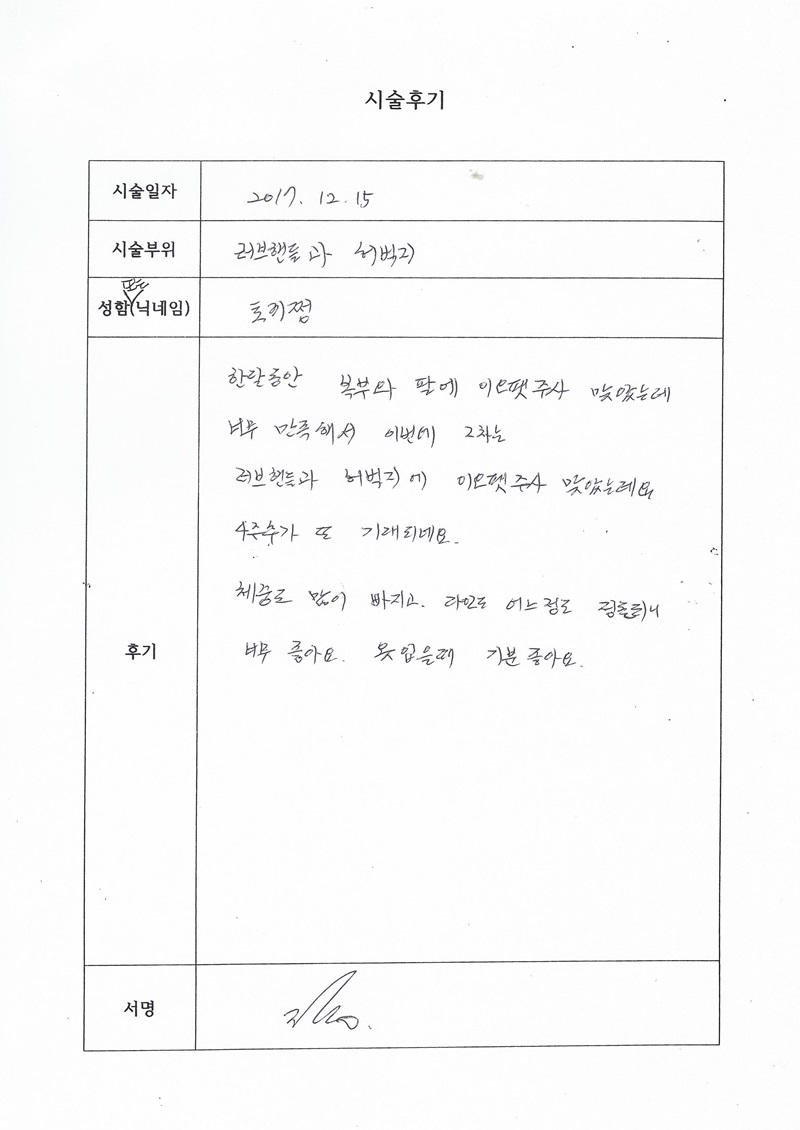 시술후기
시술일자 2017. 12. 15
시술부위 러브핸들과 허벅지
또는
성함(닉네임) 토끼쩜
한달동안 복부와 팔에 이오펫주사 맞았는데
너무 만족해서 이번에 2차는
러브핸들과 허벅지에 이오펫주사 맞았는데요
4주후가 또 기대되네요.
체중도 많이 빠지고. 라인도 어느정도 정돈되니
후기
너무 좋아요. 옷 입을때 기분좋아요.
서명